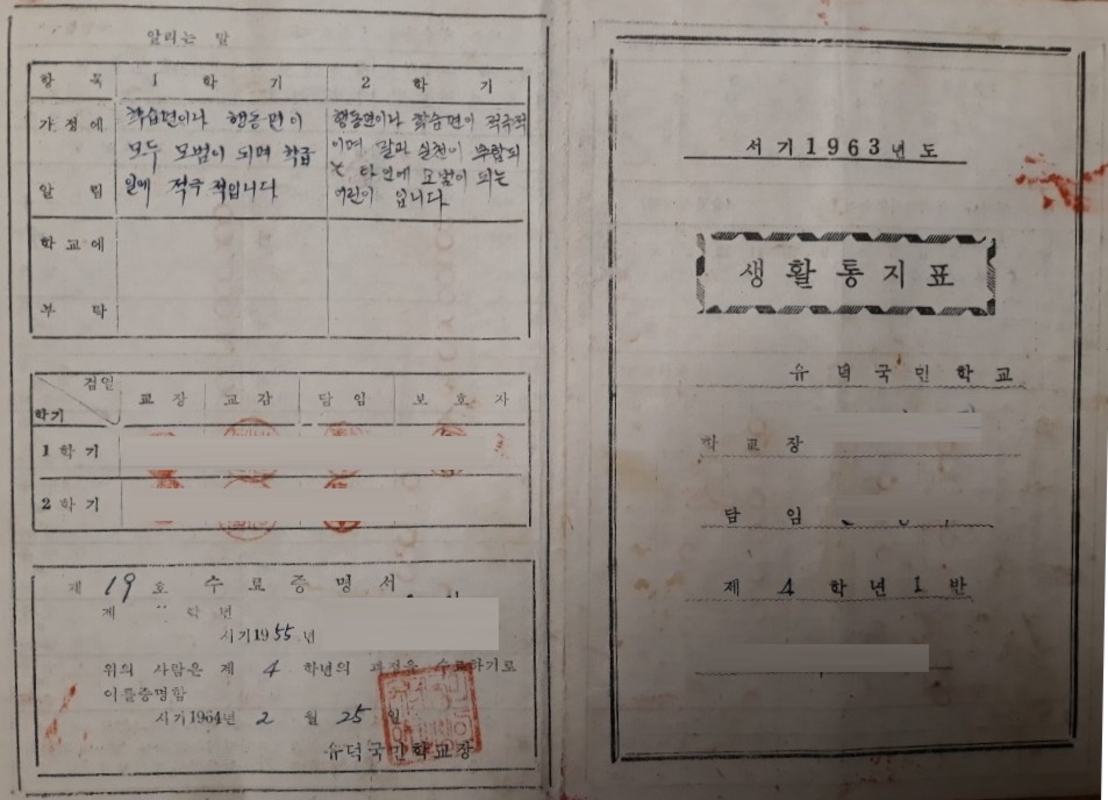 알리는 말
항 목 1 학 기 2 학 기
가정에 알림
학습면이나 행동면이
모두 모범이 되며 학급
일에 적극 적입니다
행동면이나 학습면이 적극적
이며 말과 실천이 부합되
는 타인에 모범이 되는
어린이 입니다.
학교에 부탁
검인
학기
교장 교감 담임 보호자
1 학기
2 학기
제 19 호 수료증명서
제 학년
서기1955년
위의 사람은 제 4 학년의 과정을 수료하기로
이를증명함
서기1964년 2 월 25 일
유덕국민학교장
서기1963년도
생활통지표
유덕국민학교
학교장
담 임
제 4 학년 1 반